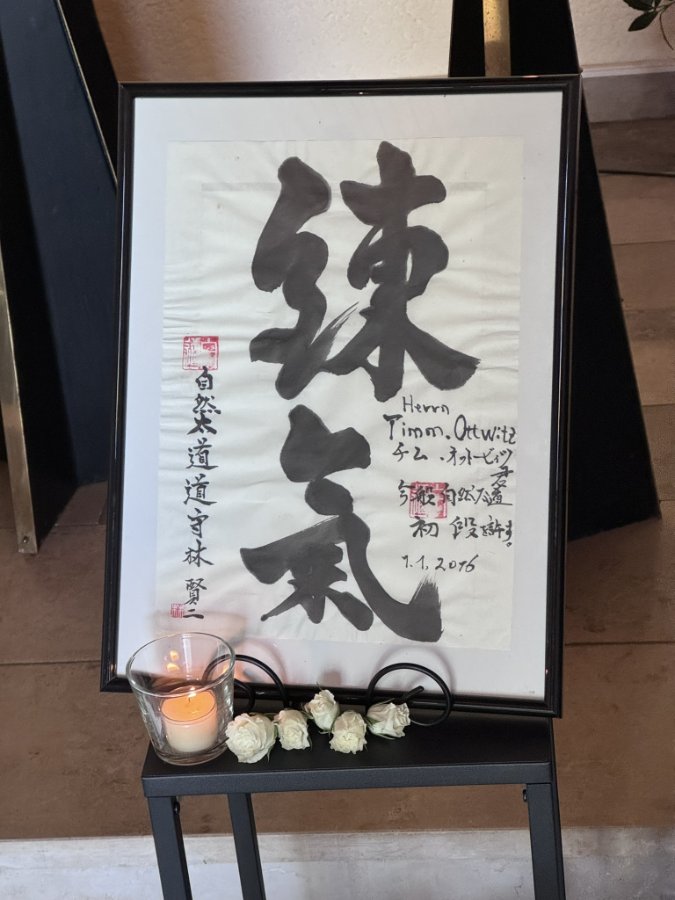 練氣
Herrn
Timm.Ottwitz
チム.オットービィツ
君
今般自然太道
初段を許す。
1.1.2016
自然太道道守林賢二